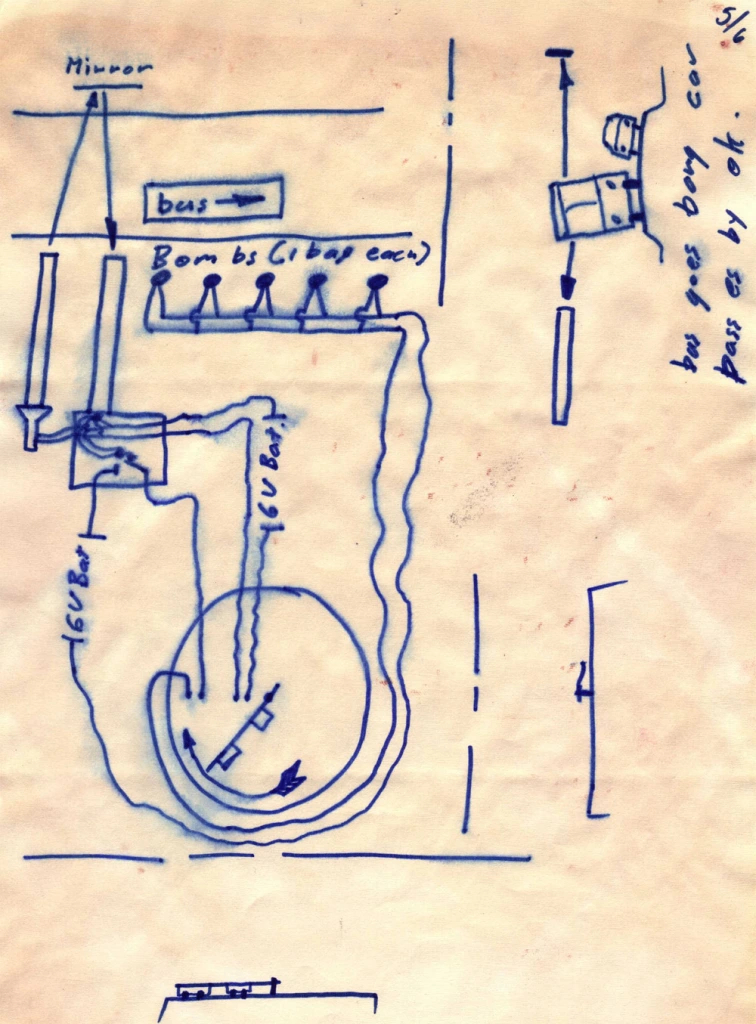 5/6
Mirror
bus goes bomg car
pass es by ok.
bus
Bombs (1 bag each)
6V Bat.
6V Bat